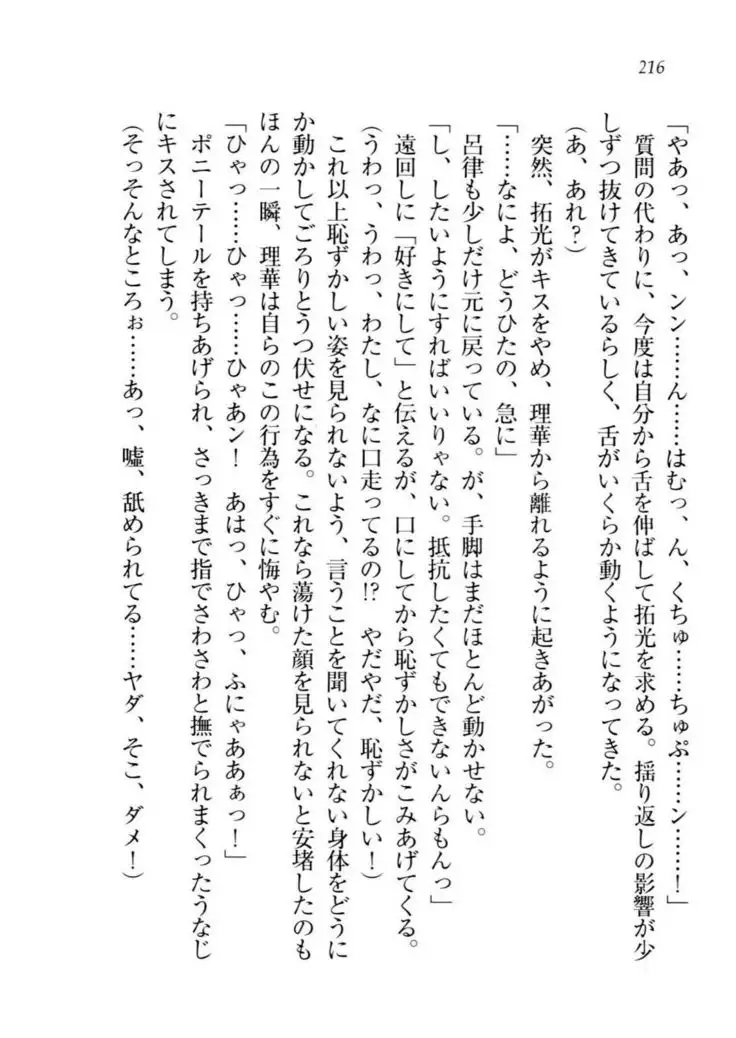 216
「やあっ、あっ、ンン……ん……はむっ、ん、くちゅ……ちゅぷ……ン……！」
　質問の代わりに、今度は自分から舌を伸ばして拓光を求める。揺り返しの影響が少
しずつ抜けてきているらしく、舌がいくらか動くようになってきた。
（あ、あれ？）
　突然、拓光がキスをやめ、理華から離れるように起きあがった。
「……なによ、どうひたの、急に」
　呂律も少しだけ元に戻っている。が、手脚はまだほとんど動かせない。
「し、したいようにすればいいりゃない。抵抗したくてもできないんらもんっ」
　遠回しに「好きにして」と伝えるが、口にしてから恥ずかしさがこみあげてくる。
（うわっ、うわっ、わたし、なに口走ってるの!?　やだやだ、恥ずかしい！）
　これ以上恥ずかしい姿を見られないよう、言うことを聞いてくれない身体をどうに
か動かしてごろりとうつ伏せになる。これなら蕩けた顔を見られないと安堵したのも
ほんの一瞬、理華は自らのこの行為をすぐに悔やむ。
「ひゃっ……ひゃっ……ひゃあン！　あはっ、ひゃっ、ふにゃああぁっ！」
　ポニーテールを持ちあげられ、さっきまで指でさわさわと撫でられまくったうなじ
にキスされてしまう。
（そっそんなところぉ……あっ、嘘、舐められてる……ヤダ、そこ、ダメ！）